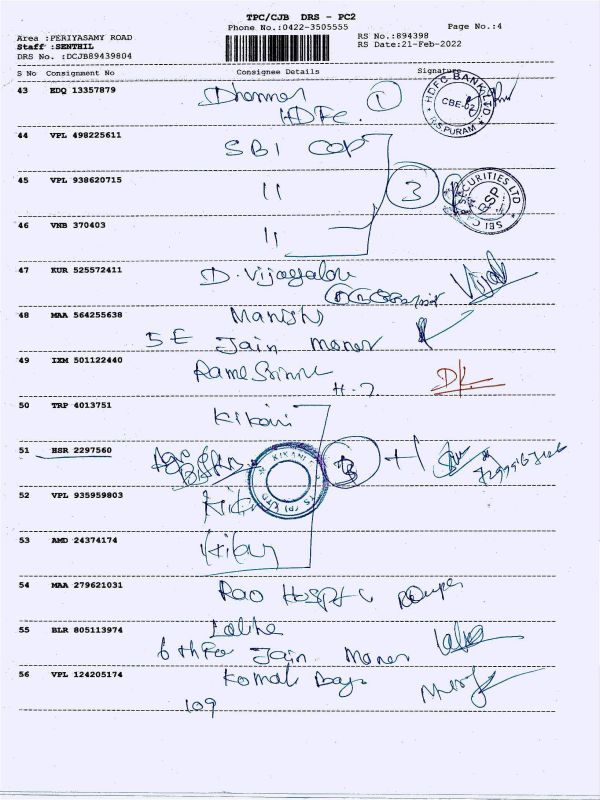 TPC/CJB DRS - PC2
Phone No.:0422-3505555
Page No.:4
Area :PERIYASAMY ROAD
Staff :SENTHIL
DRS No. :DCJB89439804
RS No.:894398
RS Date:21-Feb-2022
S No Consignment No Consignee Details Signature
43 EDQ 13357879
HDFC 1
HDFC BANK LTD
CBE-02
R.S.PURAM
44 VPL 498225611 SBI CAP
45 VPL 938620715 11 3
SECURITIES LTD
46 VNB 370403 11
47 KUR 525572411 D. Vijayalou
48 MAA 564255638 Manish
5E Jain Maner
49 IXM 501122440
50 TRP 4013751 Kikani
51 HSR 2297560
KIKANI
52 VPL 935959803
53 AMD 24374174
54 MAA 279621031 Rao Hospital
55 BLR 805113974 Lalitha
6th Flo Jain Maner
56 VPL 124205174 Komal
109